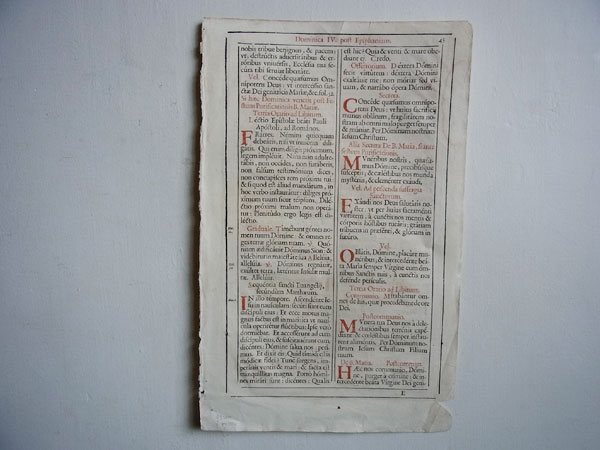 Dominica IV. post Epiphaniam. 45
nobis tribue benignus, & pacem:
ut, destructis adversitatibus & er-
roribus universis, Ecclesia tua se-
cura tibi serviat libertate.
Vel. Concede quæsumus Omni-
potens Deus: vt intercessio san-
ctæ Dei genitricis Mariæ, &c. fol.
Si hæc Dominica venerit post Fe-
stum Purificationis B. Mariæ.
Tertia Oratio ad Libitum.
Lectio Epistolæ beati Pauli
Apostoli, ad Romanos.
FRatres. Nemini quicquam
debeatis, nisi ut invicem dili-
gatis. Qui enim diligit proximum,
legem implevit. Nam non adulte-
rabis, non occides, non furaberis,
non falsum testimonium dices,
non concupisces rem proximi tui:
& si quod est aliud mandatum, in
hoc verbo instauratur: diliges pro-
ximum tuum sicut teipsum. Dile-
ctio proximi malum non opera-
tur: Plenitudo ergo legis est di-
lectio.
Graduale. Timebunt gentes no-
men tuum Domine: & omnes re-
ges terræ gloriam tuam. ℣. Quo-
niam ædificavit Dominus Sion: &
videbitur in majestate sua Alleluia,
alleluia. ℣. Dominus regnavit,
exultet terra: lætentur insulæ mul-
tæ. Alleluia.
Sequentia sancti Euangelij,
secundum Matthæum.
IN illo tempore. Ascendente Ie-
su in naviculam: secuti sunt eum
discipuli eius: & ecce motus ma-
gnus factus est in mari ita ut navi-
cula operiretur fluctibus: Ipse vero
dormiebat. Et accesserunt ad eum
discipuli ejus, & suscitaverunt eum
dicentes: Domine salva nos: peri-
mus. Et dixit eis: Quid timidi estis
modicæ fidei? Tunc surgens, im-
peravit ventis & mari: & facta est
tranquillitas magna. Porro homi-
nes mirati sunt: dicentes: Qualis
est hic? Quia & venti & mare obe-
diunt ei? Credo.
Offertorium. Dextera Domini
fecit virtutem: dextera Domini
exaltavit me: non moriar sed vi-
vam, & narrabo opera Domini.
Secreta.
COncede quæsumus omnipo-
tens Deus: vt huius sacrificij
munus oblatum, fragilitatem no-
stram ab omni malo purget semper
& muniat. Per Dominum nostrum
Iesum Christum.
Alia Secreta De B. Maria, si ante
festum Purificationis.
MVneribus nostris, quæsu-
mus Domine, precibusque
susceptis: & cælestibus nos munda
mysterijs, & clementer exaudi.
Vel. Ad poscenda suffragia
Sanctorum.
EXaudi nos Deus salutaris no-
ster: ut per huius sacramenti
virtutem, à cunctis nos mentis &
corporis hostibus tuearis: gratiam
tribuens in præsenti, & gloriam in
futuro.
Vel.
OBlatis, Domine, placare mu-
neribus: & intercedente bea-
ta Maria semper Virgine cum om-
nibus Sanctis tuis, à cunctis nos
defende periculis.
Tertia Oratio ad Libitum.
Communio. Mirabantur om-
nes de his, quæ procedebant de ore
Dei.
Postcommunio.
MVnera tua Deus nos à dele-
ctationibus terrenis expe-
diant: & cælestibus semper instau-
rent alimentis. Per Dominum no-
strum Iesum Christum Filium
tuum.
De B. Maria. Postcommunio.
HÆc nos communio, Domi-
ne, purget à crimine: & in-
tercedente beata Virgine Dei geni-